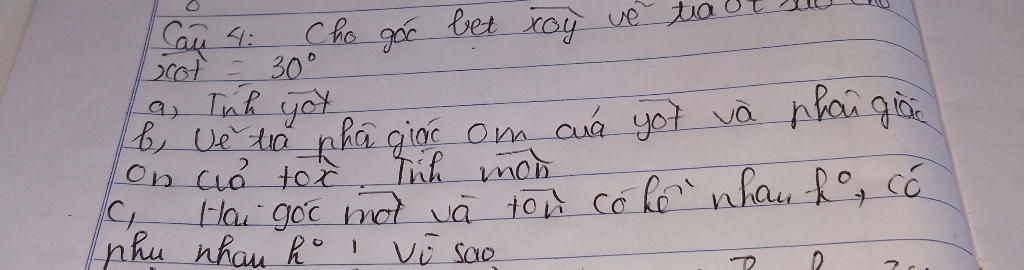 Câu 4: Cho góc bet xoy vẽ tia Ot sao cho
xot = 30°
a, Tính yot
b, Vẽ tia phâ giác Om cuả yot và phai giác
On củả tox. Tính mon
c, Hai góc mot và ton có kề nhau ko, có
phu nhau ko! Vì sao